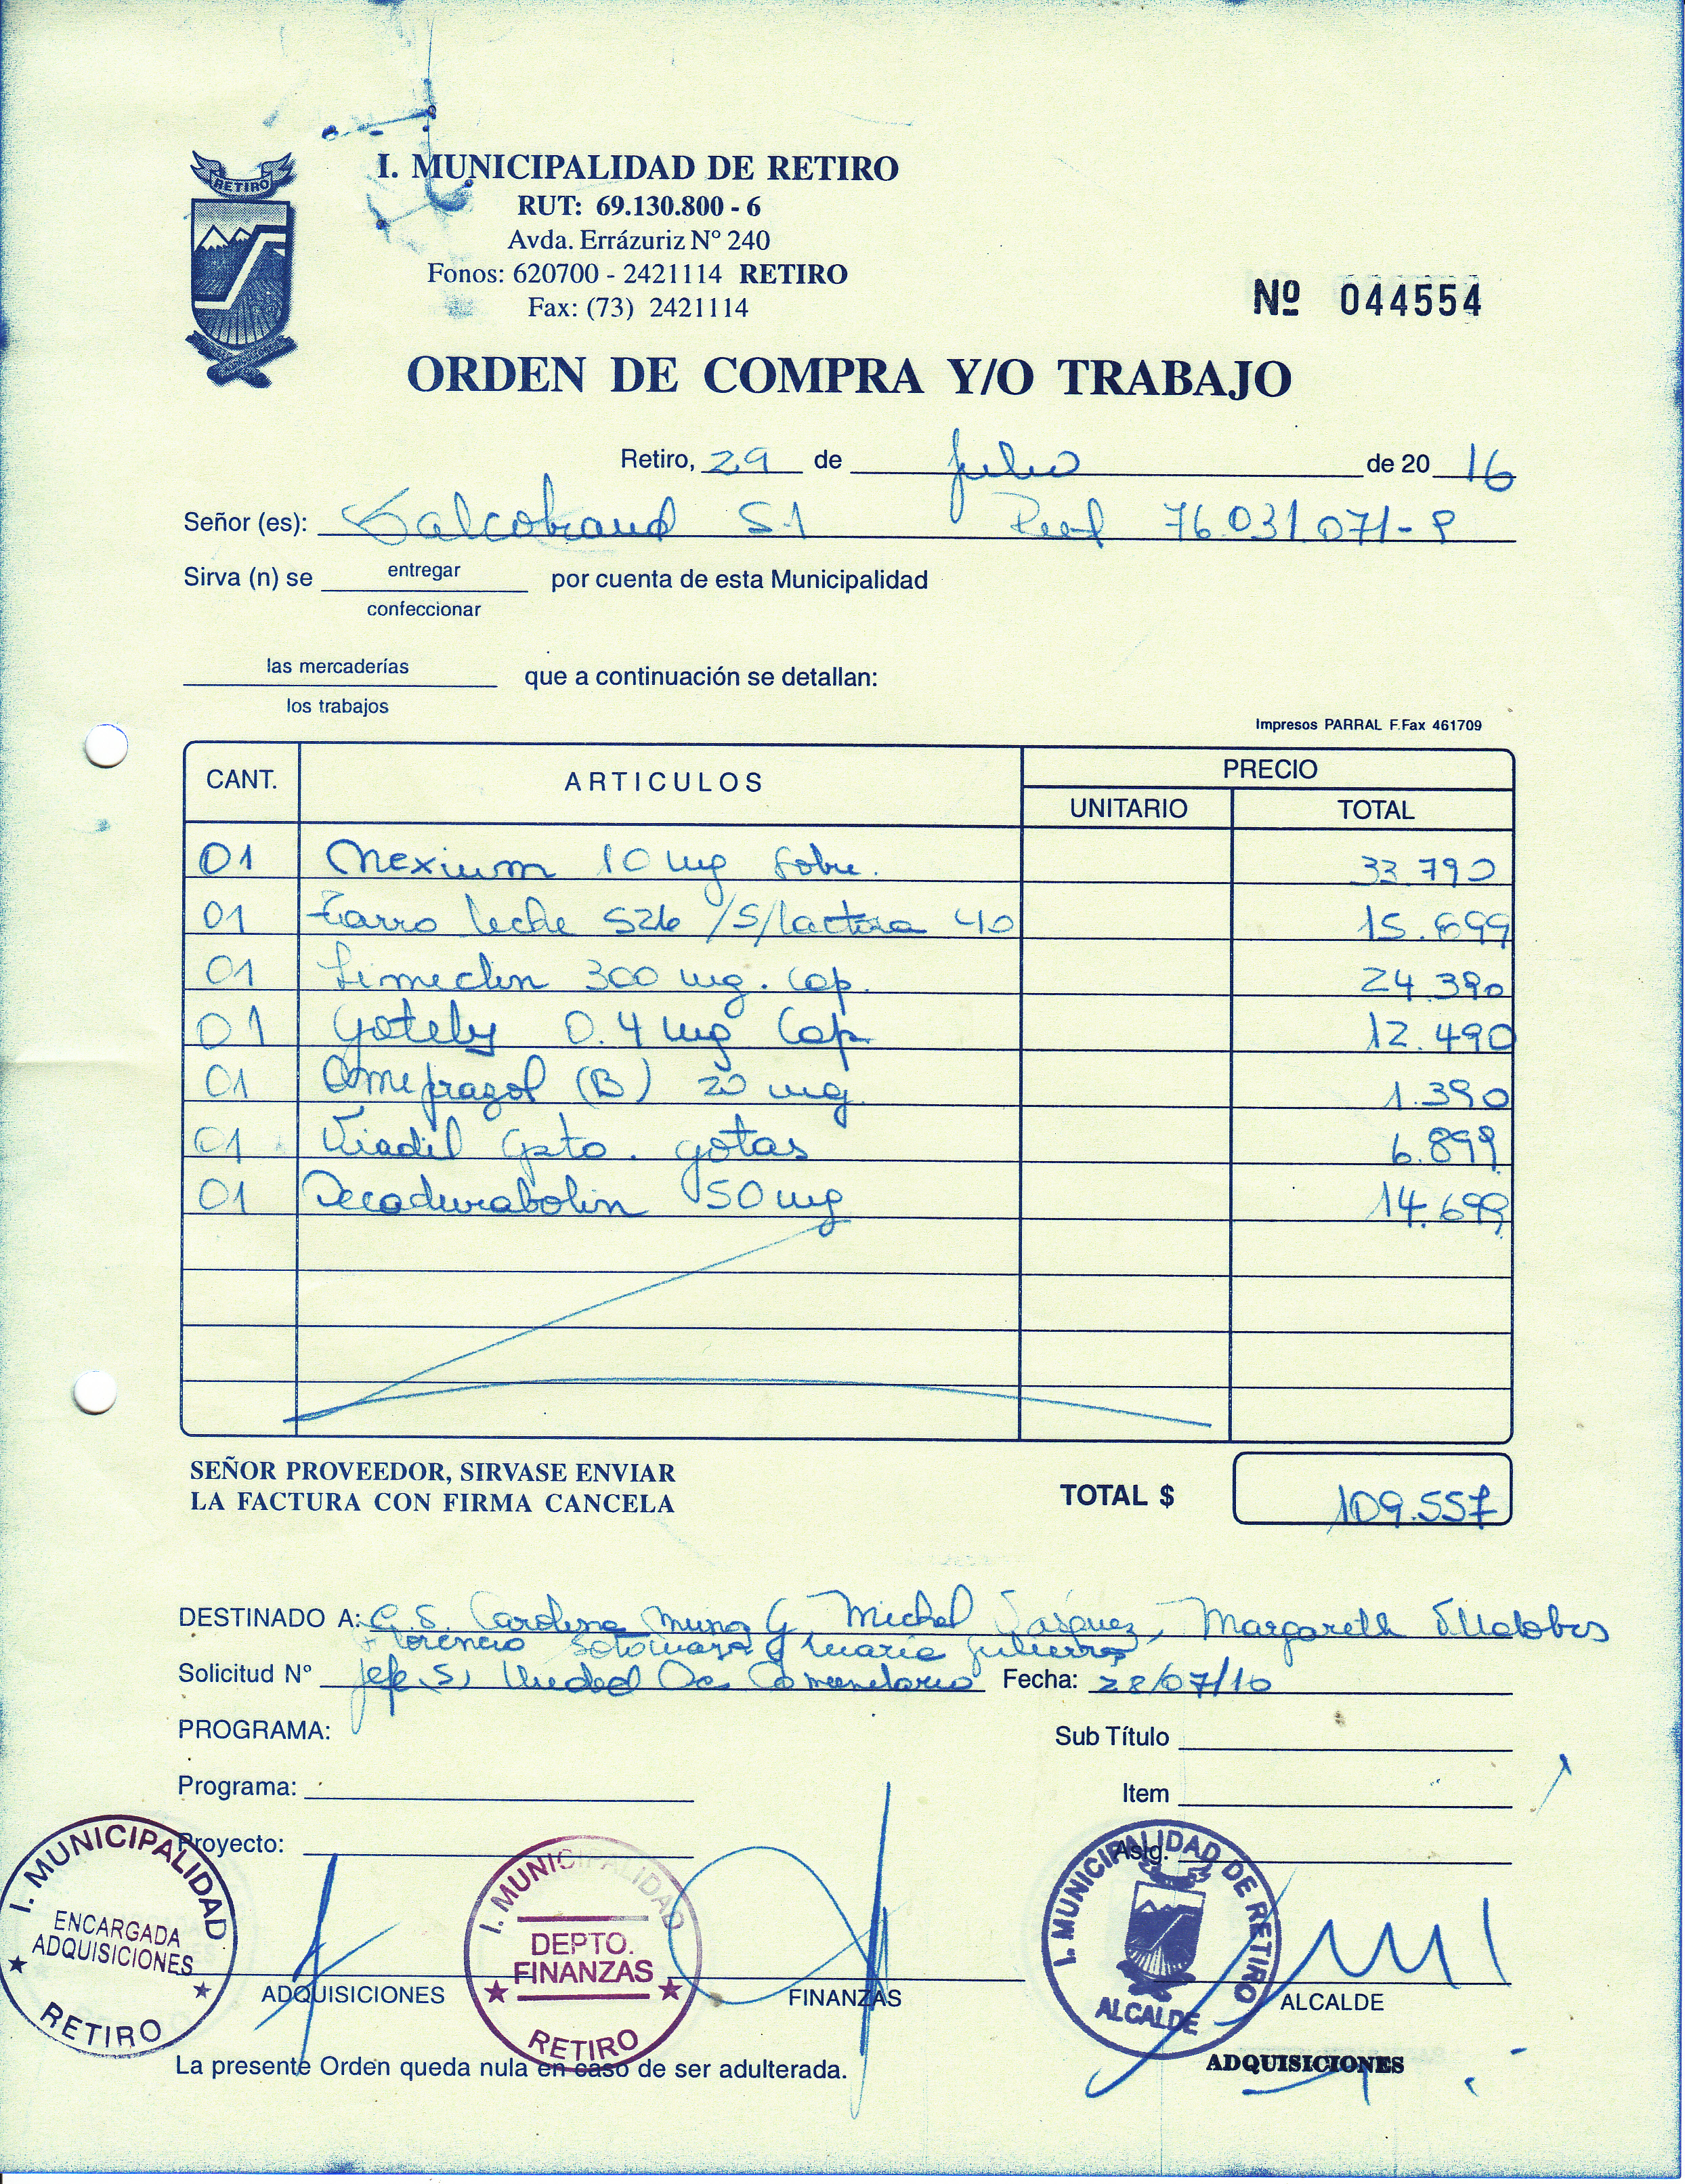 RETIRO
I. MUNICIPALIDAD DE RETIRO
RUT: 69.130.800 - 6
Avda. Errázuriz Nº 240
Fonos: 620700 - 2421114 RETIRO
Fax: (73) 2421114
Nº 044554
ORDEN DE COMPRA Y/O TRABAJO
Retiro, 29 de Julio de 20 16
Señor (es): Salcobrand S.A Rut 76.031.071-9
Sirva (n) se entregar por cuenta de esta Municipalidad
confeccionar
las mercaderías que a continuación se detallan:
los trabajos
Impresos PARRAL F.Fax 461709
CANT. ARTICULOS PRECIO
UNITARIO TOTAL
01 Nexium 10 mg sobre. 33.790
01 Tarro leche S26 /S/lactosa 40 15.699
01 Limeclin 300 mg. Cap. 24.390
01 Gotely 0.4 mg Cap 12.490
01 Omeprazol (B) 20 mg. 1.390
01 Viadil Gto. gotas 6.899
01 Decadurabolin 50 mg 14.699
SEÑOR PROVEEDOR, SIRVASE ENVIAR
LA FACTURA CON FIRMA CANCELA
TOTAL $ 109.557
DESTINADO A: C.S. Carolina Muñoz G, Michel Vasquez, Margareth Villalobos
Florencio Sotomayor y Maria Gutierrez
Solicitud N° Jefe (S) Unidad Comunitario Fecha: 28/07/16
PROGRAMA:
Sub Título
Programa:
Item
Proyecto:
Asig.
I. MUNICIPALIDAD
ENCARGADA
ADQUISICIONES
RETIRO
ADQUISICIONES
I. MUNICIPALIDAD
DEPTO.
FINANZAS
RETIRO
FINANZAS
I. MUNICIPALIDAD DE RETIRO
ALCALDE
ALCALDE
La presente Orden queda nula en caso de ser adulterada.
ADQUISICIONES